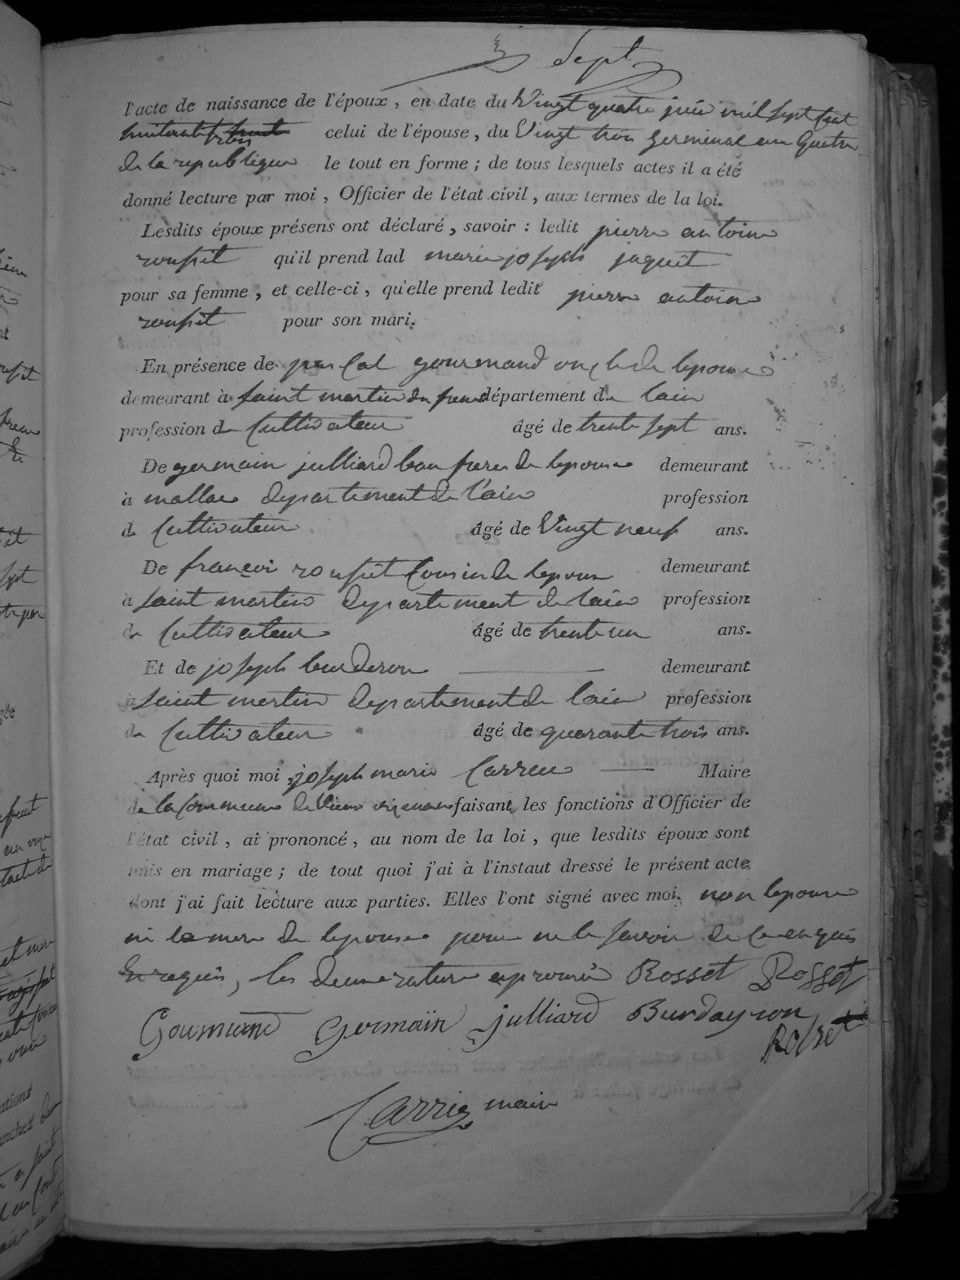 Sept
l'acte de naissance de l'époux, en date du Vingt quatre juin mil sept Cent
huitante trois celui de l'épouse, du Vingt trois Germinal an Quatre
de la republique le tout en forme ; de tous lesquels actes il a été
donné lecture par moi, Officier de l'état civil, aux termes de la loi.
Lesdits époux présens ont déclaré, savoir : ledit pierre antoine
rousset qu'il prend lad marie joseph jaquet
pour sa femme, et celle-ci, qu'elle prend ledit pierre antoine
rousset pour son mari.
En présence de pascal gourmand oncle de lepouse
demeurant à saint martin du frene département de lain
profession de Cultivateur âgé de trente sept ans.
De germain julliard beau frere de lepouse demeurant
à departement de l'ain profession
de Cultivateur âgé de Vingt neuf ans.
De françoi rousset Cousin de lepoux demeurant
à saint martin departement de lain profession
de Cultivateur âgé de trente un ans.
Et de joseph demeurant
à saint martin departement de lain profession
de Cultivateur âgé de quarante trois ans.
Après quoi moi joseph marie Carrier Maire
de la Commune de faisant les fonctions d'Officier de
l'état civil, ai prononcé, au nom de la loi, que lesdits époux sont
unis en mariage ; de tout quoi j'ai à l'instant dressé le présent acte
dont j'ai fait lecture aux parties. Elles l'ont signé avec moi. non lepouse
ni la mere de lepouse pour ne le savoir de ce enquis
Et requis, les deux Rosset Rosset
Gourmand Germain julliard Burdayron
Rosset
Carrier maire